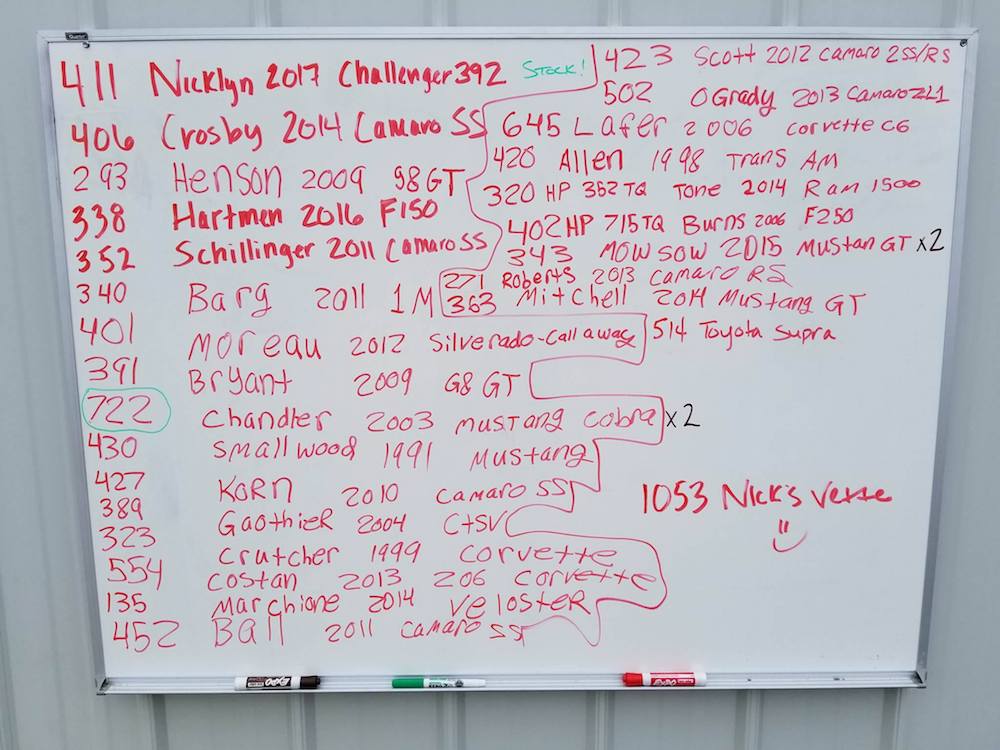 411 Nicklyn 2017 Challenger 392 Stock!
406 Crosby 2014 Camaro SS
293 Henson 2009 G8 GT
338 Hartmen 2016 F150
352 Schillinger 2011 Camaro SS
340 Barg 2011 1M
401 Moreau 2012 Silverado-Callaway
391 Bryant 2009 G8 GT
722 Chandler 2003 Mustang Cobra x2
430 Smallwood 1991 Mustang
427 Korn 2010 Camaro SS
389 Gaothier 2004 CTSV
323 Crutcher 1999 Corvette
554 Costan 2013 Z06 Corvette
135 Marchione 2014 Veloster
452 Ball 2011 Camaro SS
423 Scott 2012 Camaro 2SS/RS
502 OGrady 2013 Camaro ZL1
645 Lafer 2006 Corvette C6
420 Allen 1998 Trans AM
320 HP 352 TQ Tone 2014 Ram 1500
402 HP 715 TQ Burns 2006 F250
343 Mowsow 2015 Mustan GT x2
271 Roberts 2013 Camaro RS
363 Mitchell 2014 Mustang GT
514 Toyota Supra
1053 Nick's Vette
EXPO
EXPO